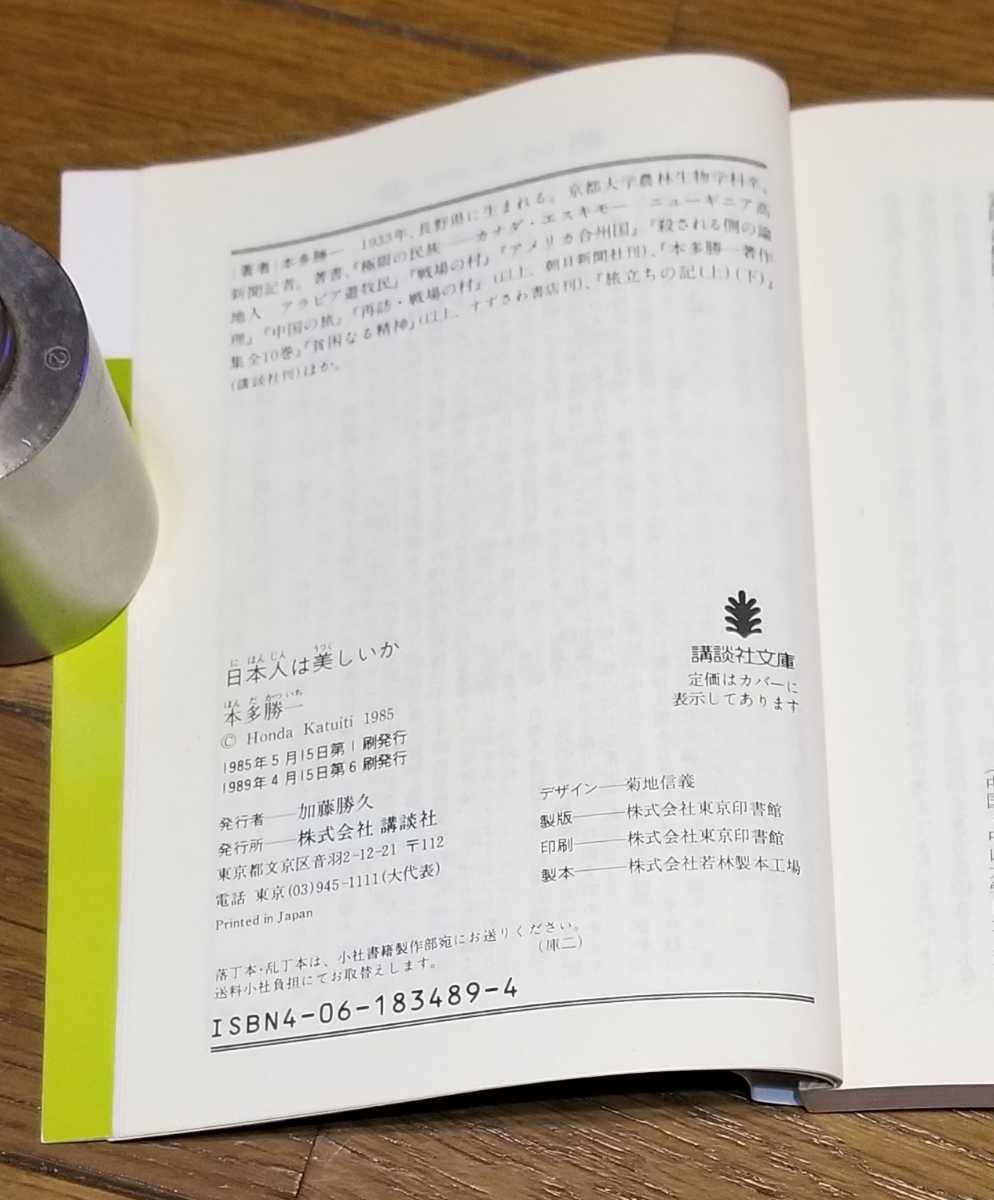 |著者|本多勝一 1933年、長野県に生まれる。京都大学農林生物学科卒。
新聞記者。著書、『極限の民族──カナダ・エスキモー ニューギニア高
地人 アラビア遊牧民』『戦場の村』『アメリカ合州国』『殺される側の論
理』『中国の旅』『再訪・戦場の村』(以上、朝日新聞社刊)、『本多勝一著作
集全10巻』『貧困なる精神』(以上、すずさわ書店刊)、『旅立ちの記(上)(下)』
(講談社刊)ほか。
に ほん じん うつく
日本人は美しいか
ほん だ かつ いち
本多勝一
© Honda Katuiti 1985
1985年5月15日第1刷発行
1989年4月15日第6刷発行
発行者──加藤勝久
発行所──株式会社 講談社
東京都文京区音羽2-12-21 〒112
電話 東京(03)945-1111(大代表)
Printed in Japan
講談社文庫
定価はカバーに
表示してあります
デザイン──菊地信義
製版────株式会社東京印書館
印刷────株式会社東京印書館
製本────株式会社若林製本工場
落丁本・乱丁本は、小社書籍製作部宛にお送りください。
送料小社負担にてお取替えします。 (庫二)
ISBN4-06-183489-4
②